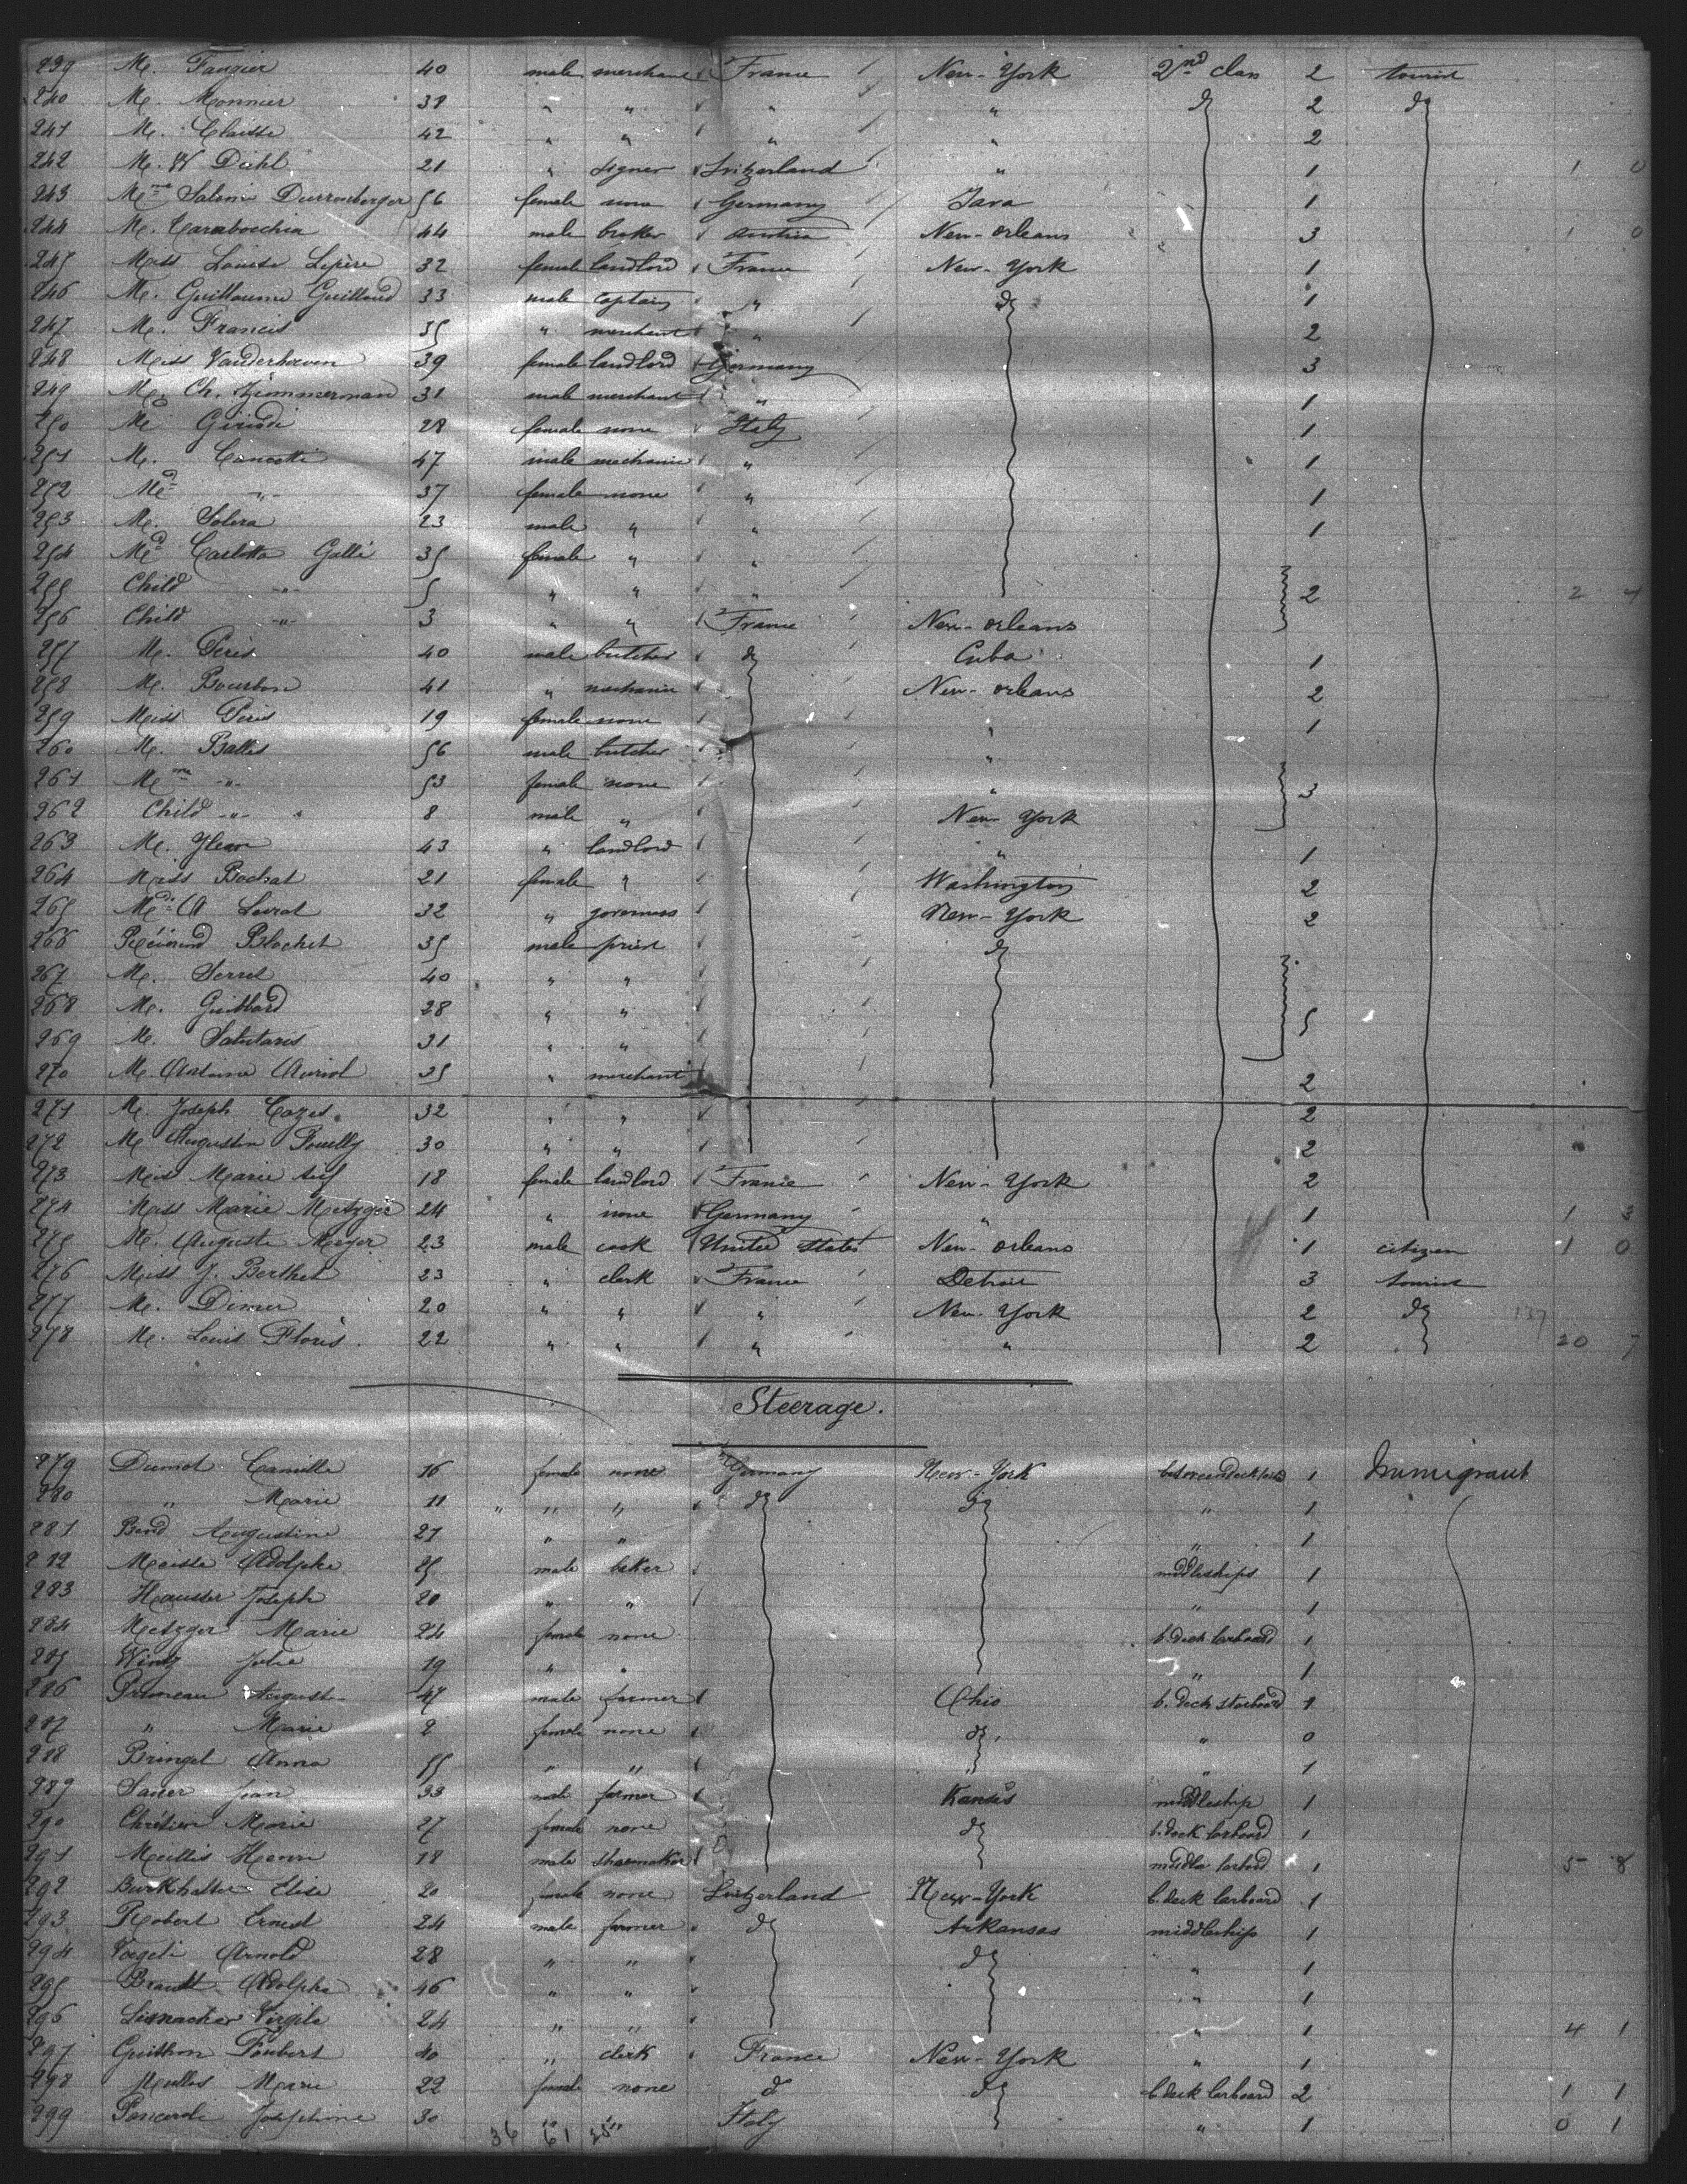 239 M. Faugier 40 male merchant France New-York 2nd class 2 tourist
240 M. Monnier 38 " " " " do 2 do
241 M. Claisse 42 " " " " 2
242 M. W Diehl 21 " signer Switzerland " 1 1 0
243 Mme Salomé Durrenberger 56 female none Germany Java 1
244 M. Carabocchia 44 male broker Austria New-orleans 3 1 0
245 Miss Louise Lepère 32 female landlord France New-York 1
246 M. Guillaume Guilloud 33 male captain " do 1
247 M. Francis 35 " merchant " 2
248 Miss Vanderhoeven 39 female landlord Germany 3
249 M. Ch. Zimmerman 31 male merchant " 1
250 Me 28 female none Italy 1
251 M. 47 male mechanic " 1
252 Md " 37 female none " 1
253 M. Solera 23 male " " 1
254 Md Carlotta Galli 35 female " "
255 Child " 5 " " " 2 2 4
256 Child " 3 " " France New-orleans
257 M. Peris 40 male butcher do Cuba 1
258 M. Bourbon 41 " mechanic New-orleans 2
259 Miss Peris 19 female none " 1
260 M. Balles 56 male butcher "
261 Mme " 53 female none " 3
262 Child " 8 male " New York
263 M. 43 " landlord " 1
264 Miss Bochat 21 female " Washington 2
265 Md A 32 " governess New-York 2
266 Révérend Blochet 35 male priest do
267 M. Serret 40 " "
268 M. Guibbard 28 " " 5
269 M. Salutaris 31 " "
270 M. Antoine Auriol 35 " merchant 2
271 M. Joseph Cazes 32 " " 2
272 M Augustin Pouilly 30 " " 2
273 Miss Marie 18 female landlord France New-York 2
274 Miss Marie Metzger 24 " none Germany " 1 1 3
275 M. Auguste Meyer 23 male cook United States New-orleans 1 citizen 1 0
276 Miss J. Berthet 23 " clerk France Detroit 3 tourist
277 M. Dimer 20 " " " New-York 2 do 137
278 M. Louis Floris 22 " " " " 2 20 7
Steerage.
279 Dumot Camille 16 female none Germany New-York 1 Immigrant
280 " Marie 11 " " " do do " 1
281 Augustine 27 " " " 1
282 Adolphe 25 male baker middleships 1
283 Hausser Joseph 20 " " " 1
284 Metzger Marie 24 female none b. deck larboard 1
285 Wintz Julie 19 " " " 1
286 Primeau Auguste 47 male farmer Ohio b. deck starboard 1
287 " Marie 2 female none do " 0
288 Bringel Anna 55 " " " " 1
289 Sauer Jean 33 male farmer Kansas middleship 1
290 Chrétien Marie 27 female none do b. deck larboard 1
291 Henri 18 male shoemaker middle larbord 1 5 8
292 Burkhalter Elise 20 female none Switzerland New-York b. deck larboard 1
293 Robert Ernest 24 male farmer do Arkansas middleships 1
294 Vogeli Arnold 28 " " do " 1
295 Brandt Adolphe 46 " " " 1
296 Virgile 24 " " " 1 4 1
297 40 " clerk France New-York " 1
298 Marie 22 female none do do b. deck larboard 2 1 1
299 Josephine 30 " " Italy " 1 0 1
36 61 25